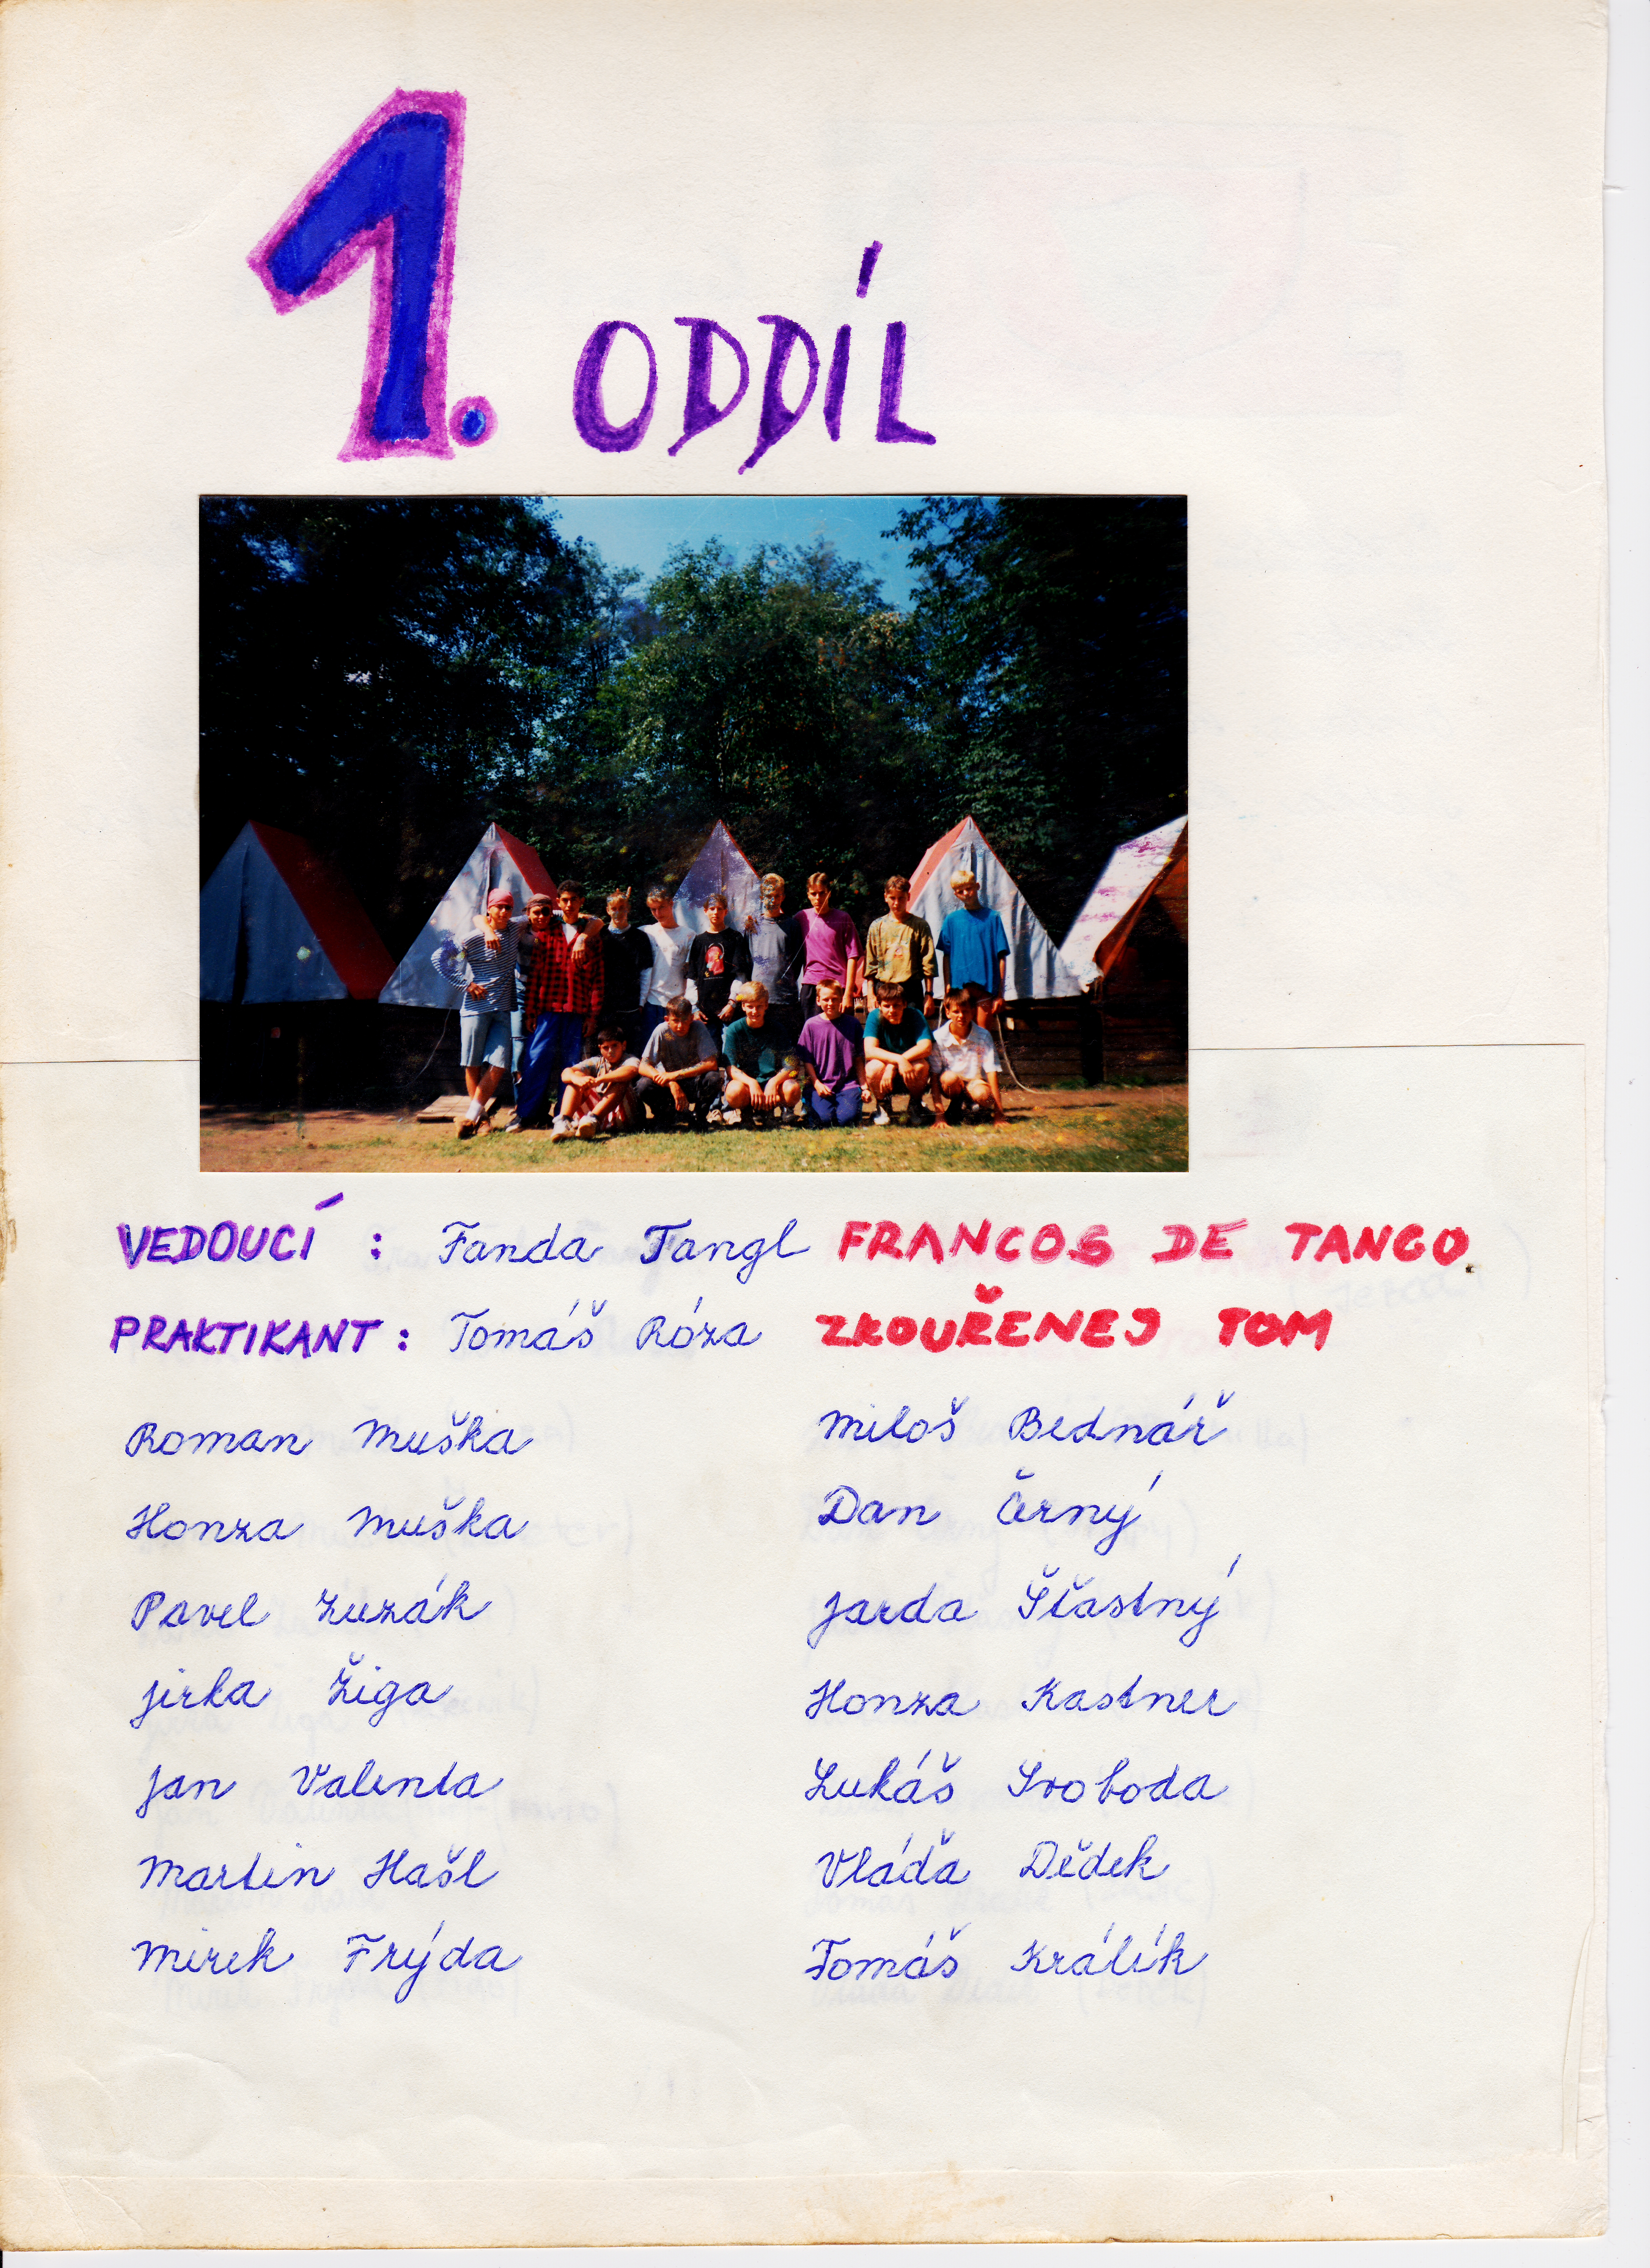 1. ODDÍL
VEDOUCÍ : Fanda Tangl FRANCOS DE TANGO
PRAKTIKANT : Tomáš Róza ZKOUŘENEJ TOM
Roman Muška
Honza Muška
Pavel Zuzák
Jirka Žiga
Jan Valenta
Martin Hašl
Mirek Frýda
Miloš Bednář
Dan Černý
Jarda Šťastný
Honza Kastner
Lukáš Svoboda
Vláďa Dědek
Tomáš Králík